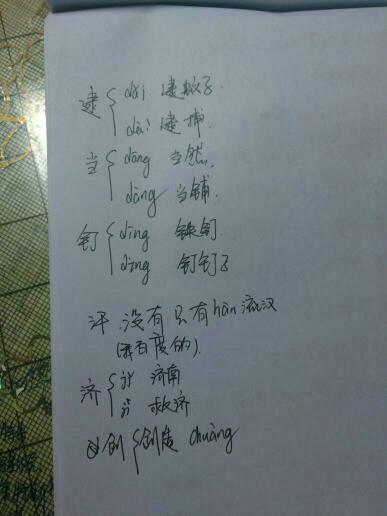 逮 { dǎi 逮蚊子
dài 逮捕
当 { dāng 当然
dàng 当铺
钉 { dīng 铁钉
dìng 钉钉子
汗 没有只有hàn 流汗
(我百度的).
济 { jǐ 济南
jì 救济
创 { 创造 chuàng